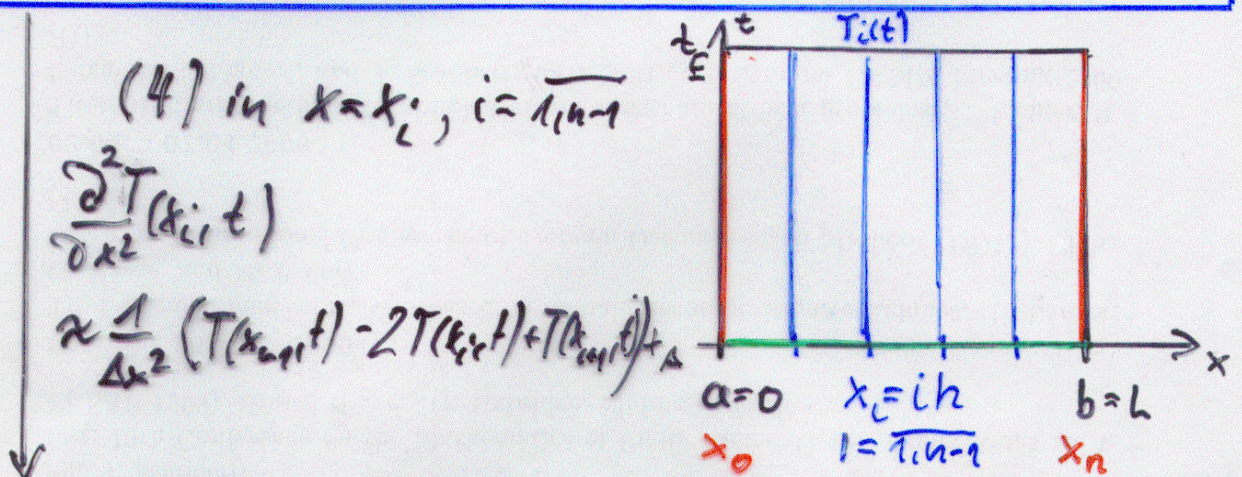 (4) in x = x_i, i = \overline{1,n-1}
∂²T/∂x² (x_i, t)
≈ 1/Δx² (T(x_{i-1}, t) - 2T(x_i, t) + T(x_{i+1}, t)) +
t
T_i(t)
t_E
x
a=0
x_i = ih
b=L
x_0
i = \overline{1,n-1}
x_n